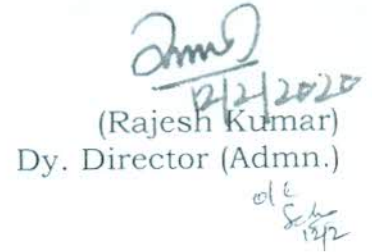 12/2/2020
(Rajesh Kumar)
Dy. Director (Admn.)
o/c
12/2